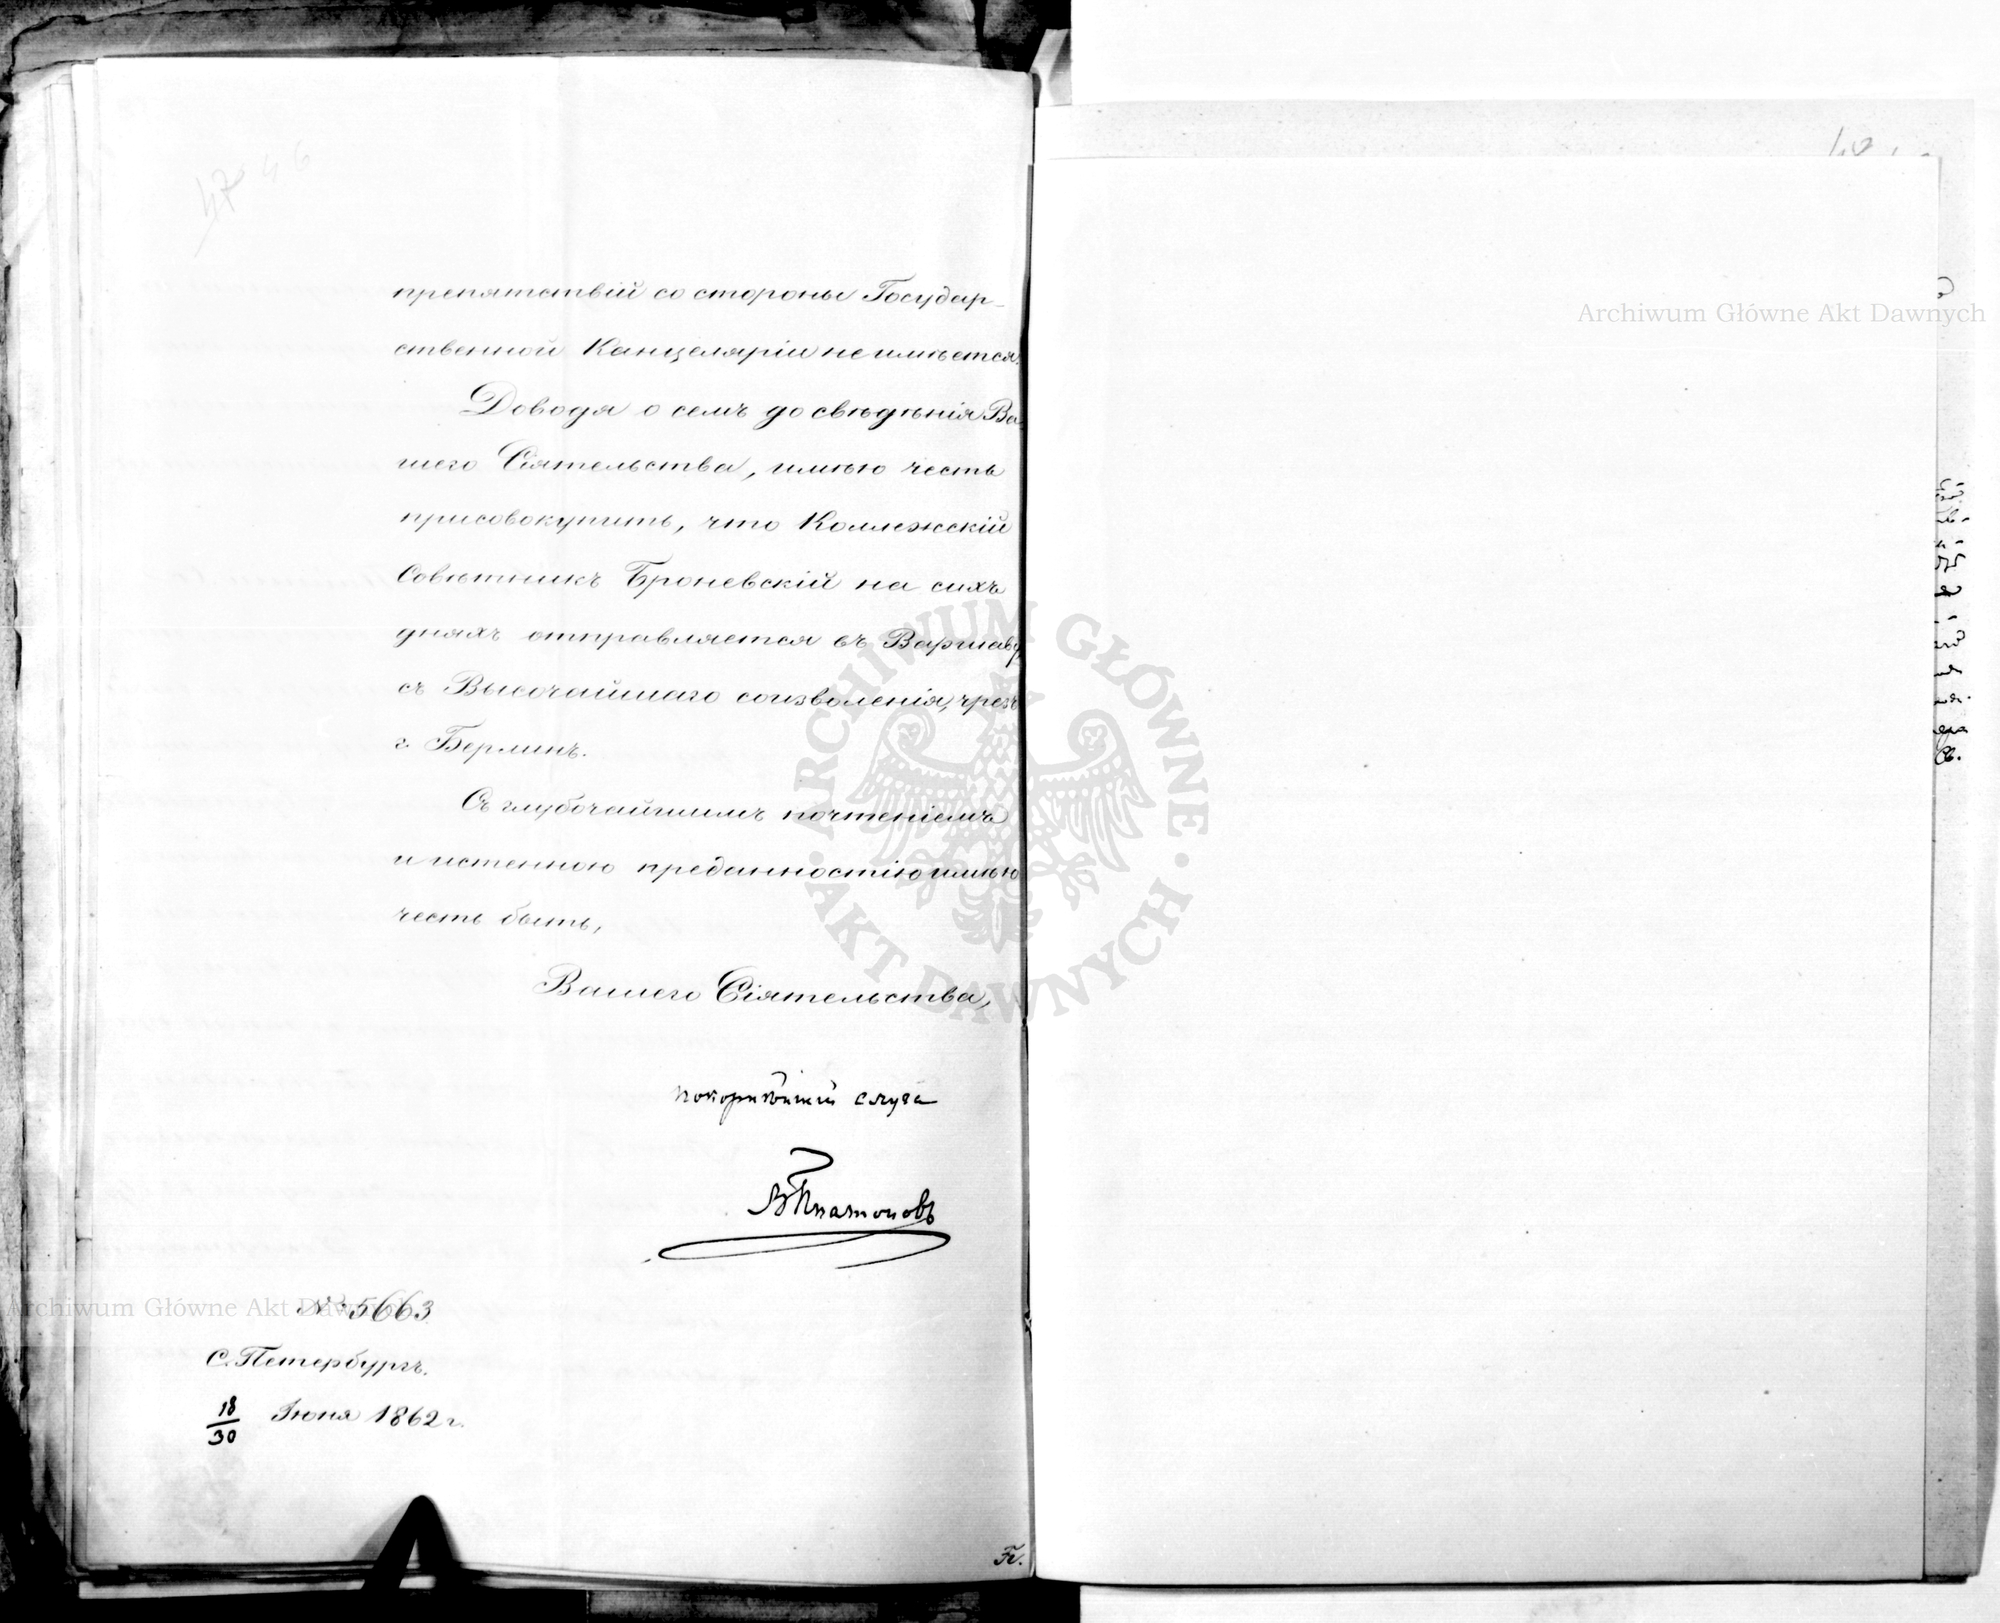 47 46
препятствій со стороны Государ-
ственной Канцеляріи не имѣется.
Доводя о семъ до свѣдѣнія Ва
шего Сіятельства, имѣю честь
присовокупить, что Коллежскій
Совѣтникъ Броневскій на сихъ
дняхъ отправляется въ Варшаву
съ Высочайшаго соизволенія, чрезъ
г. Берлинъ.
Съ глубочайшимъ почтеніемъ
и истенною преданностію имѣю
честь быть,
Вашего Сіятельства,
покорнѣйшій слуга
В Платоновъ
№ 5663
С. Петербургъ.
18/30 Іюня 1862 г.
Archiwum Główne Akt Dawnych
Archiwum Główne Akt Dawnych
ARCHIWUM GŁÓWNE AKT DAWNYCH